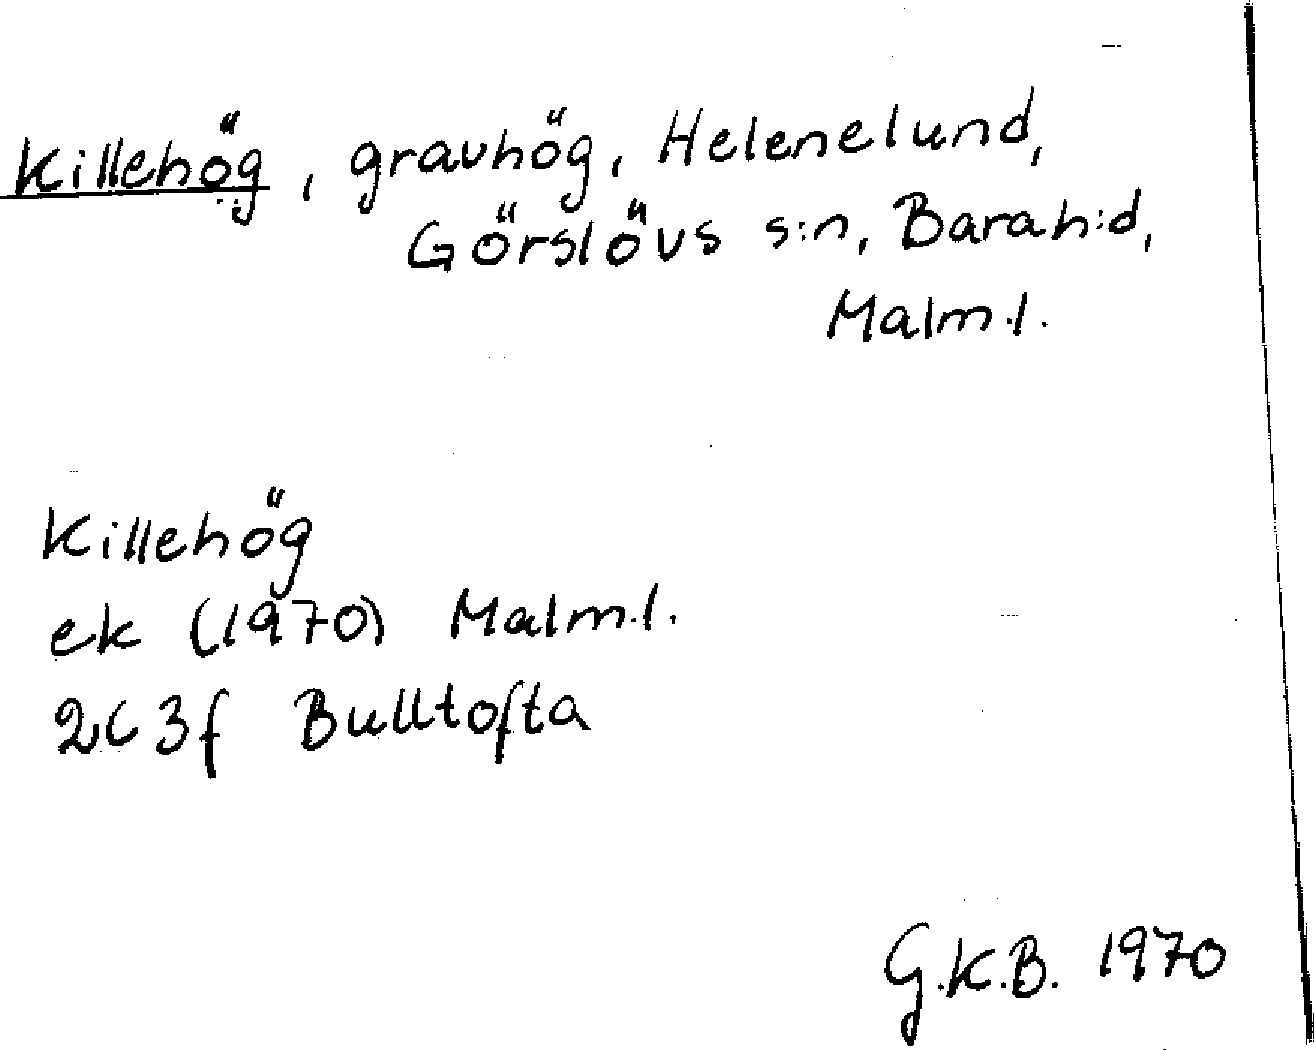 Killehög, gravhög, Helenelund,
Görslövs s:n, Barah:d,
Malm.l.
Killehög
ek (1970) Malm.l.
2C 3f Bulltofta
G.K.B. 1970